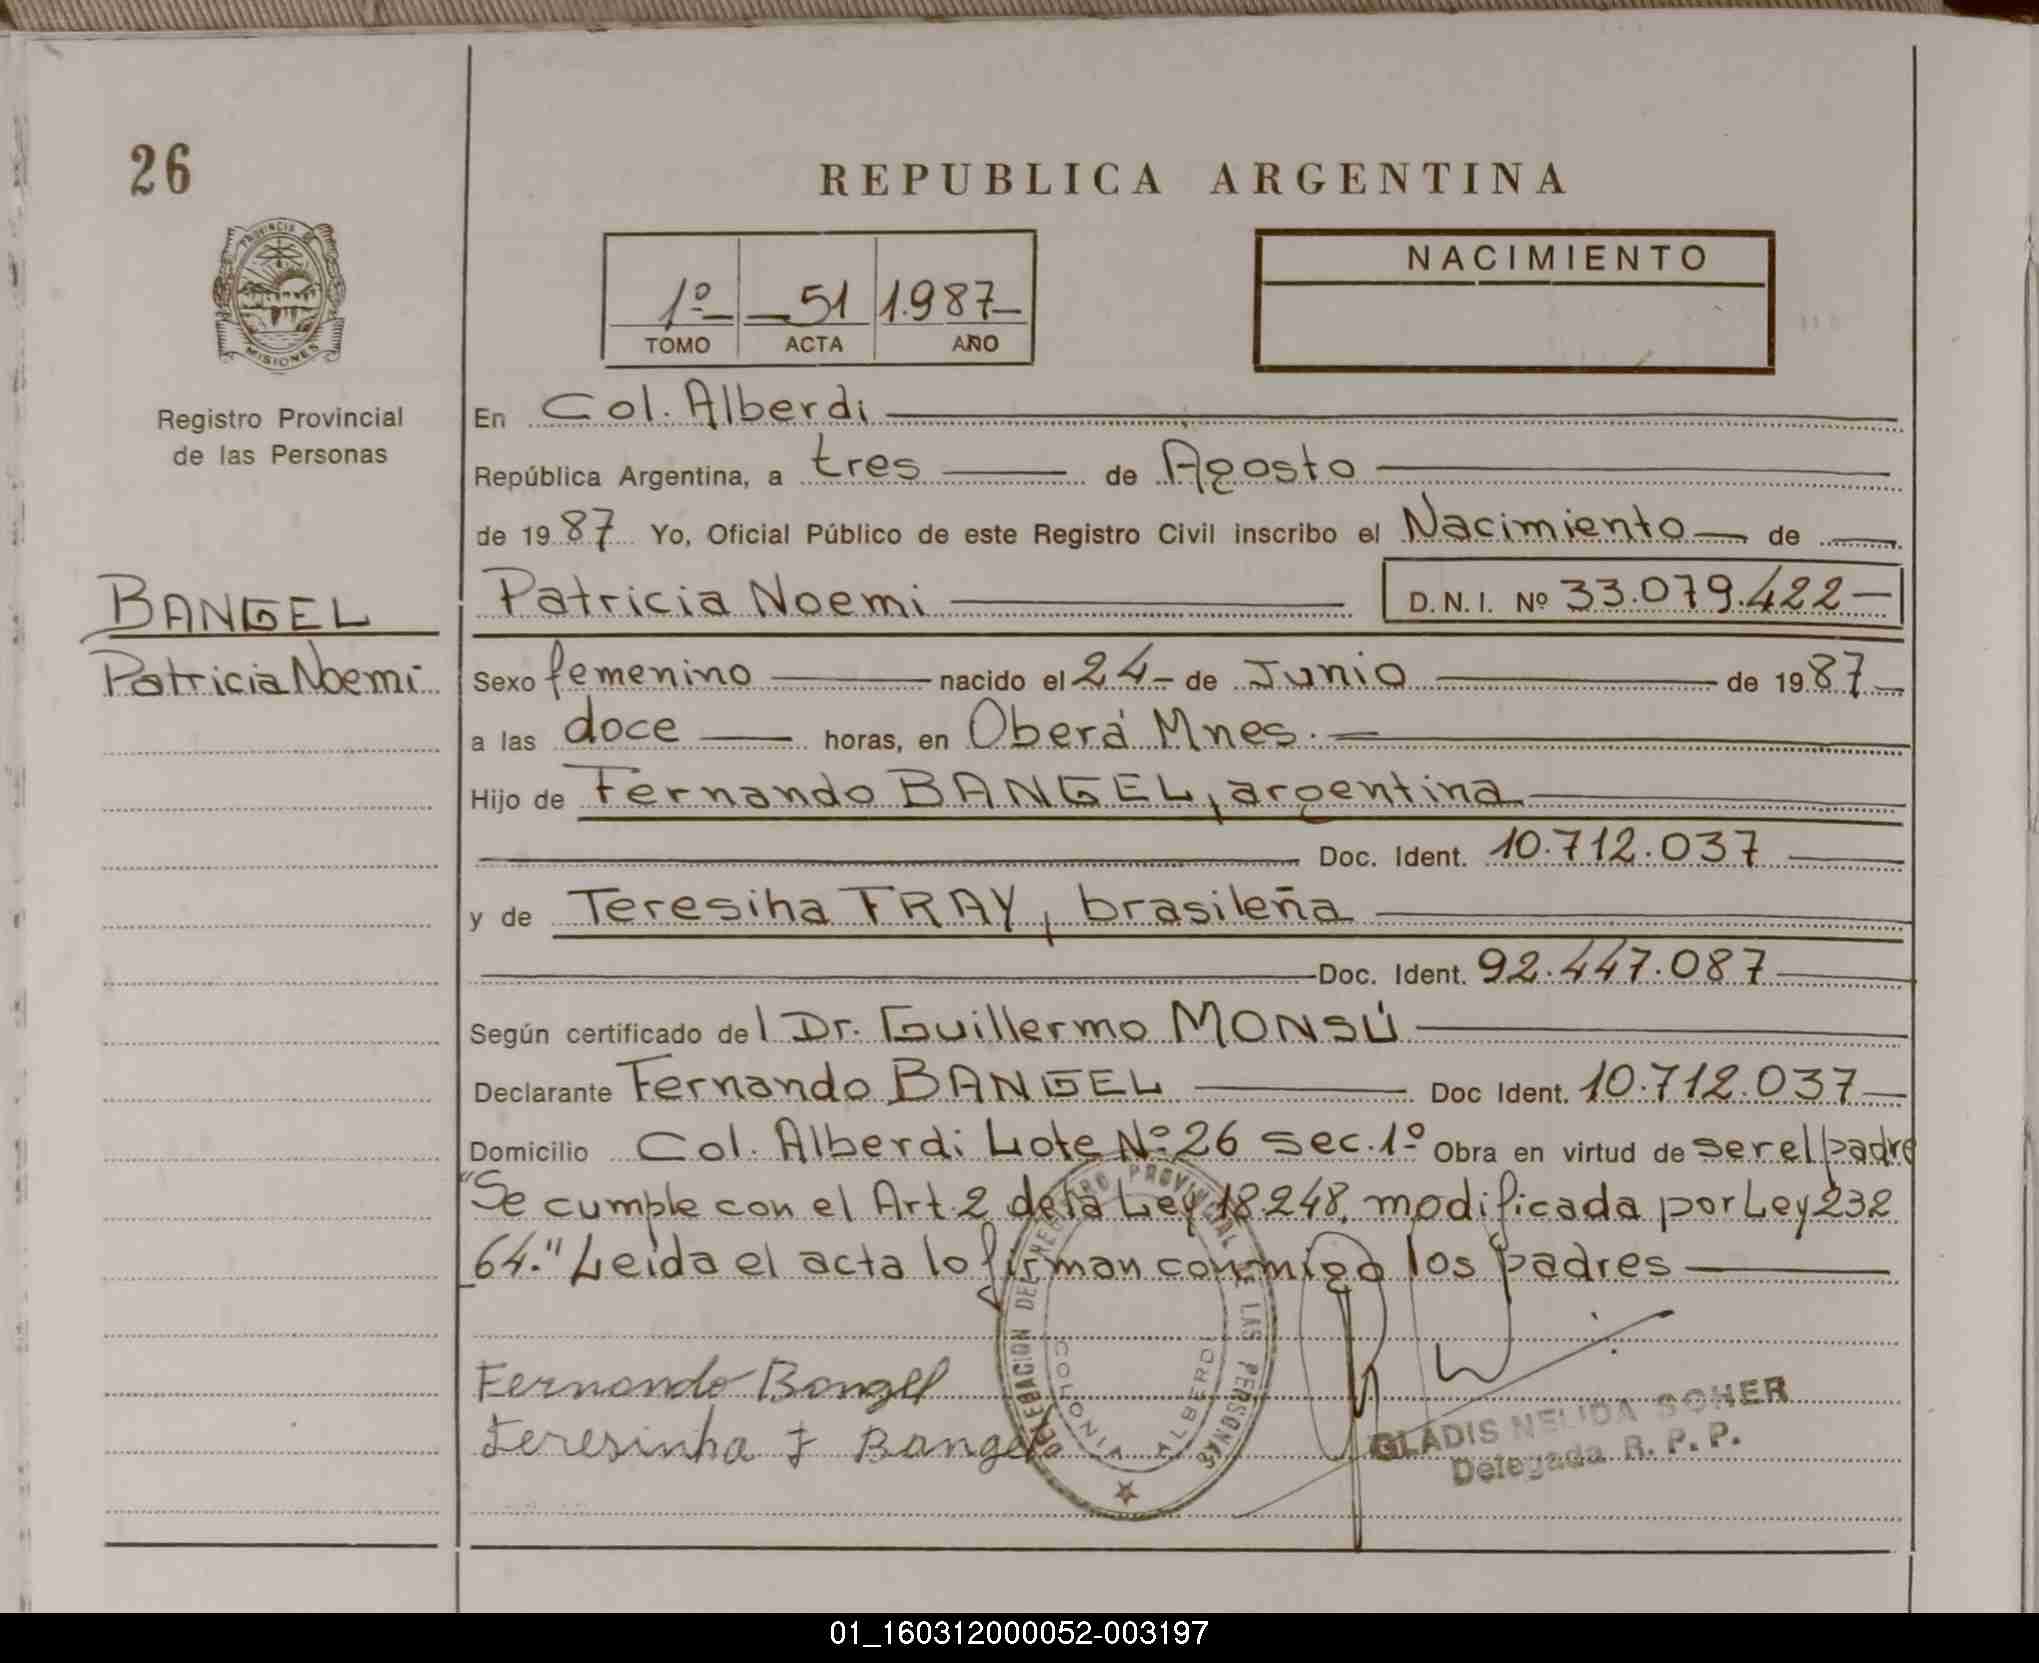 26
REPUBLICA ARGENTINA
PROVINCIA DE
MISIONES
Registro Provincial
de las Personas
1º 51 1.987
TOMO ACTA AÑO
NACIMIENTO
En Col. Alberdi
República Argentina, a tres de Agosto
de 19 87 Yo, Oficial Público de este Registro Civil inscribo el Nacimiento de
Patricia Noemi D.N.I. Nº 33.079.422
BANGEL
Patricia Noemi
Sexo femenino nacido el 24 de Junio de 19 87
a las doce horas, en Oberá Mnes.
Hijo de Fernando BANGEL, argentina
Doc. Ident. 10.712.037
y de Teresiha FRAY, brasileña
Doc. Ident. 92.447.087
Según certificado de l Dr. Guillermo MONSÚ
Declarante Fernando BANGEL Doc Ident. 10.712.037
Domicilio Col. Alberdi Lote Nº 26 sec. 1º Obra en virtud de ser el padre
"Se cumple con el Art. 2 de la Ley 18.248, modificada por Ley 232
64." Leida el acta lo firman conmigo los padres
Fernando Bangel
Teresinha F Bangel
DELEGACION DEL REGISTRO PROVINCIAL DE LAS PERSONAS
COLONIA ALBERDI
GLADIS NELIDA SOHER
Delegada R. P. P.
01_160312000052-003197